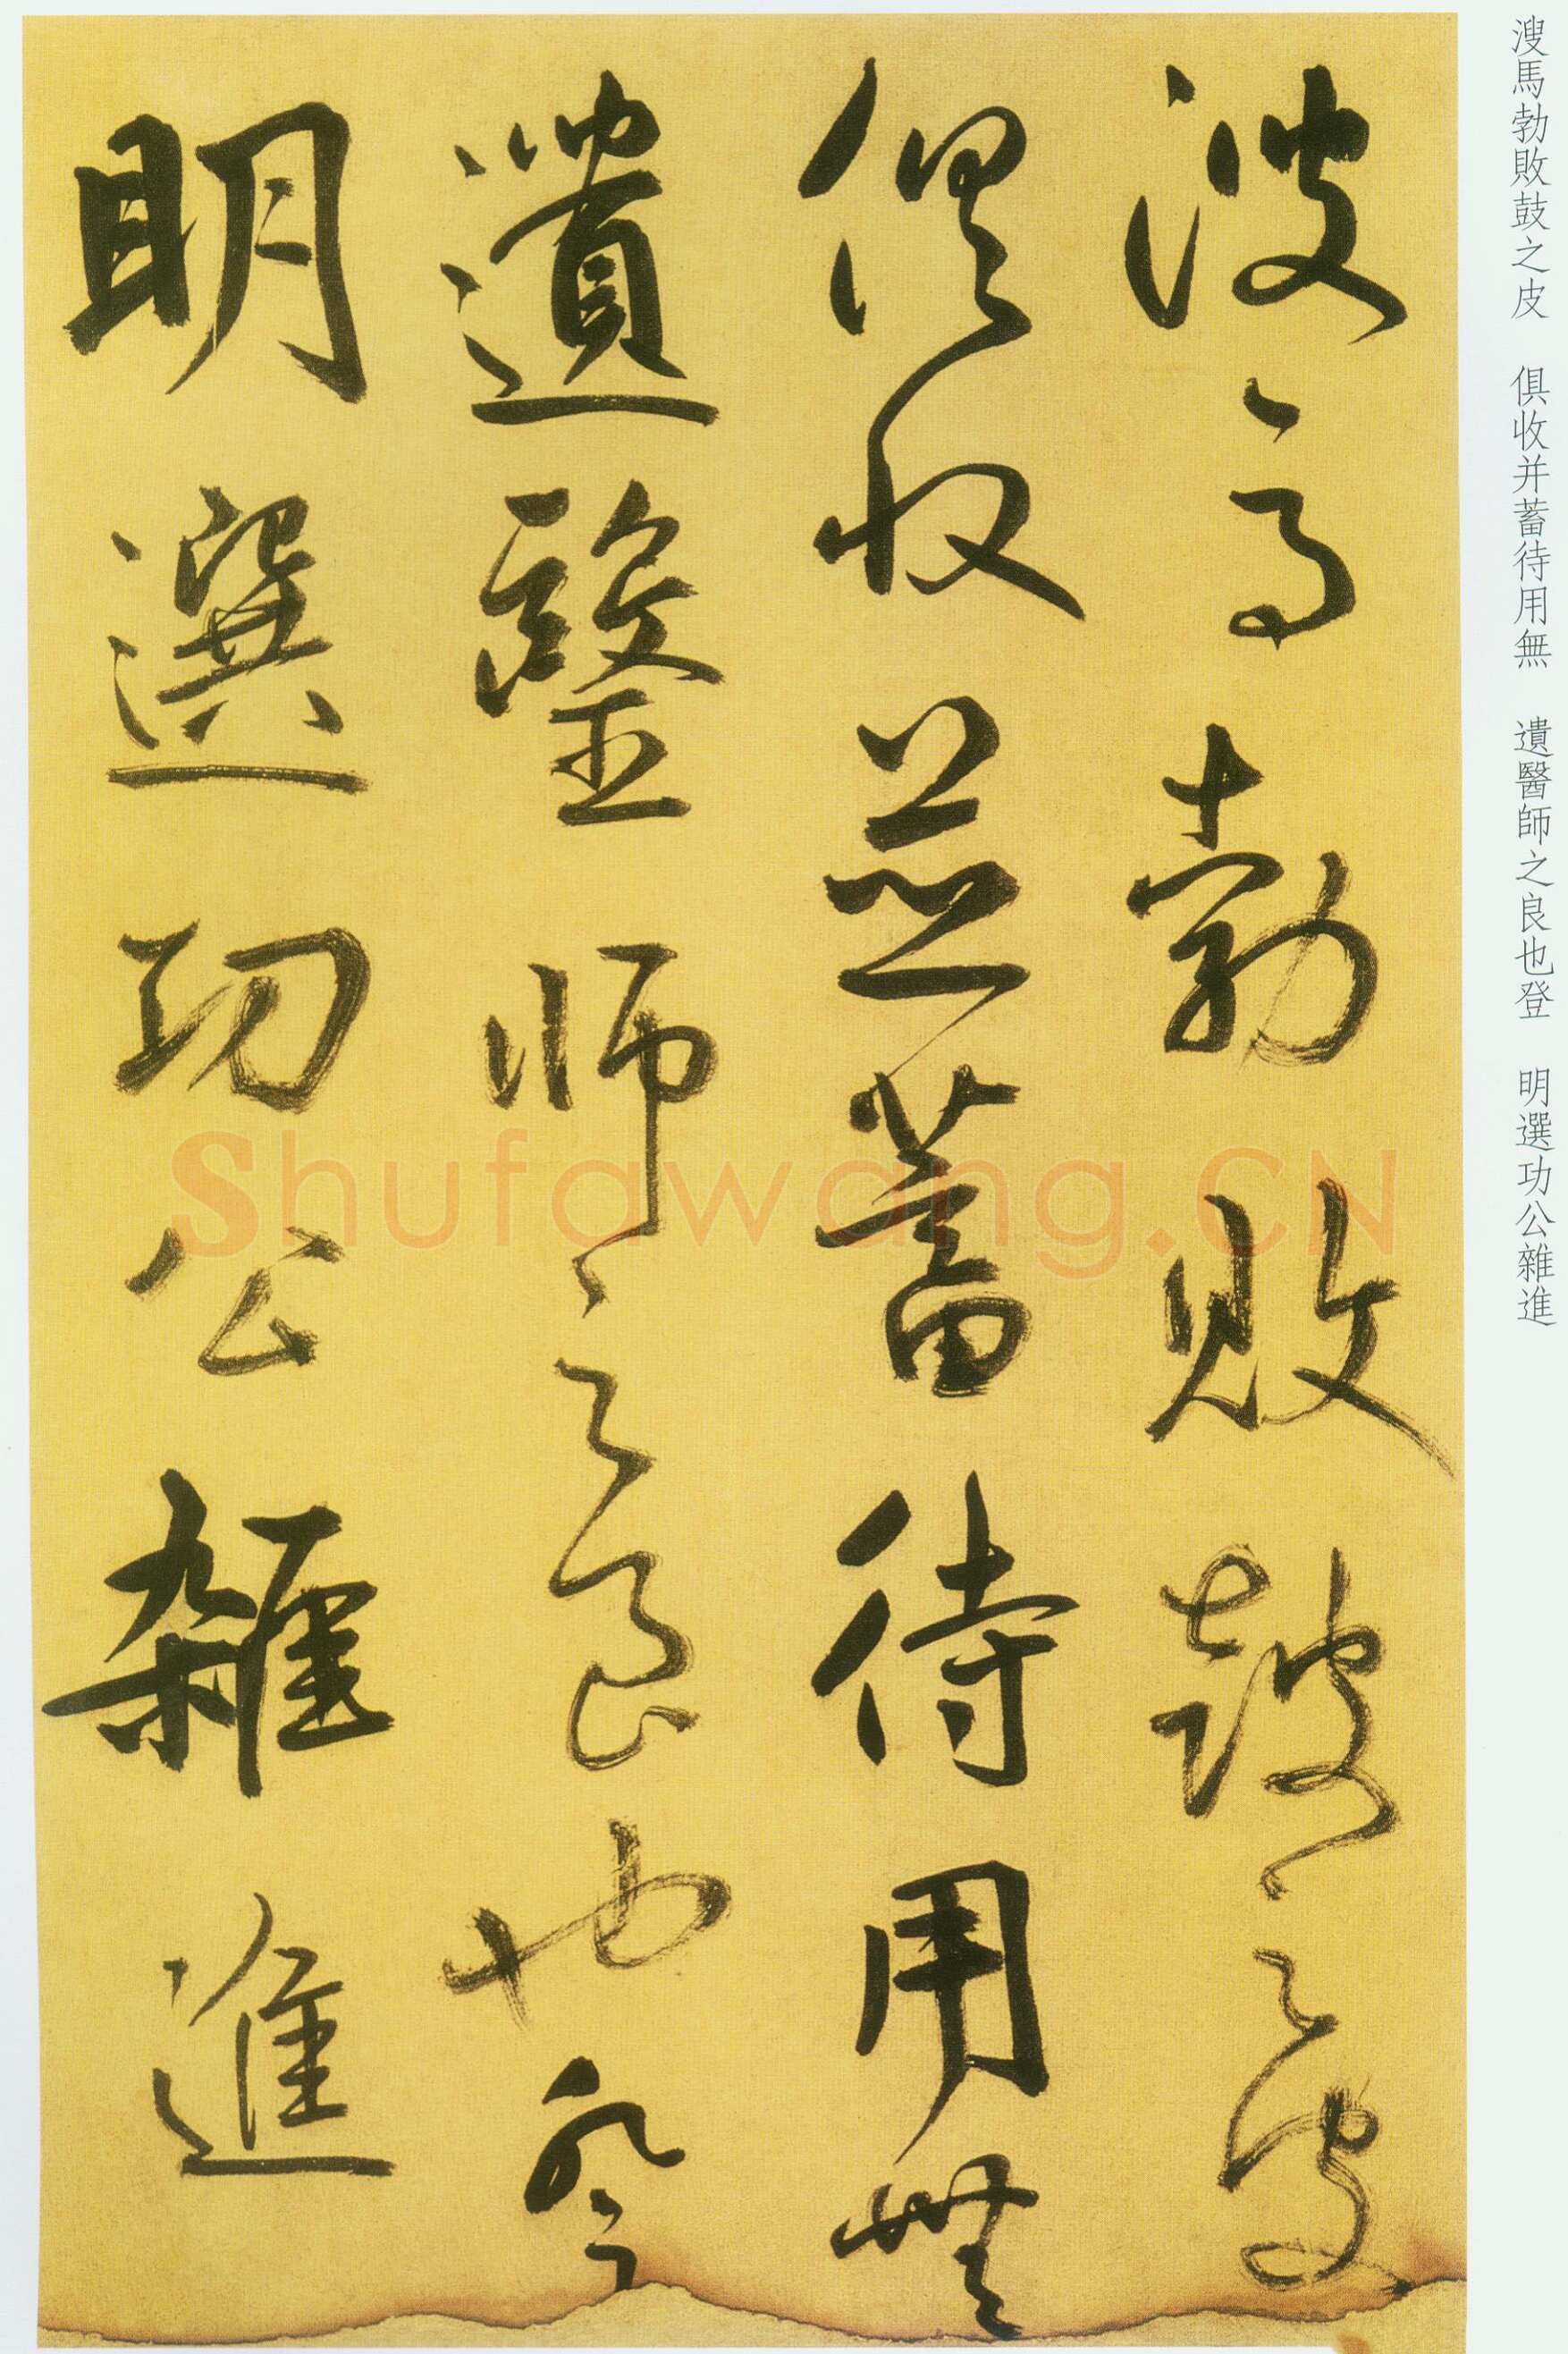 溲馬勃敗鼓之皮　俱收并蓄待用無　遺醫師之良也登　明選功公雜進
溲馬勃敗鼓之皮
俱收並蓄待用無
遺醫師之良也登
明選功公雜進
Shufawang.CN